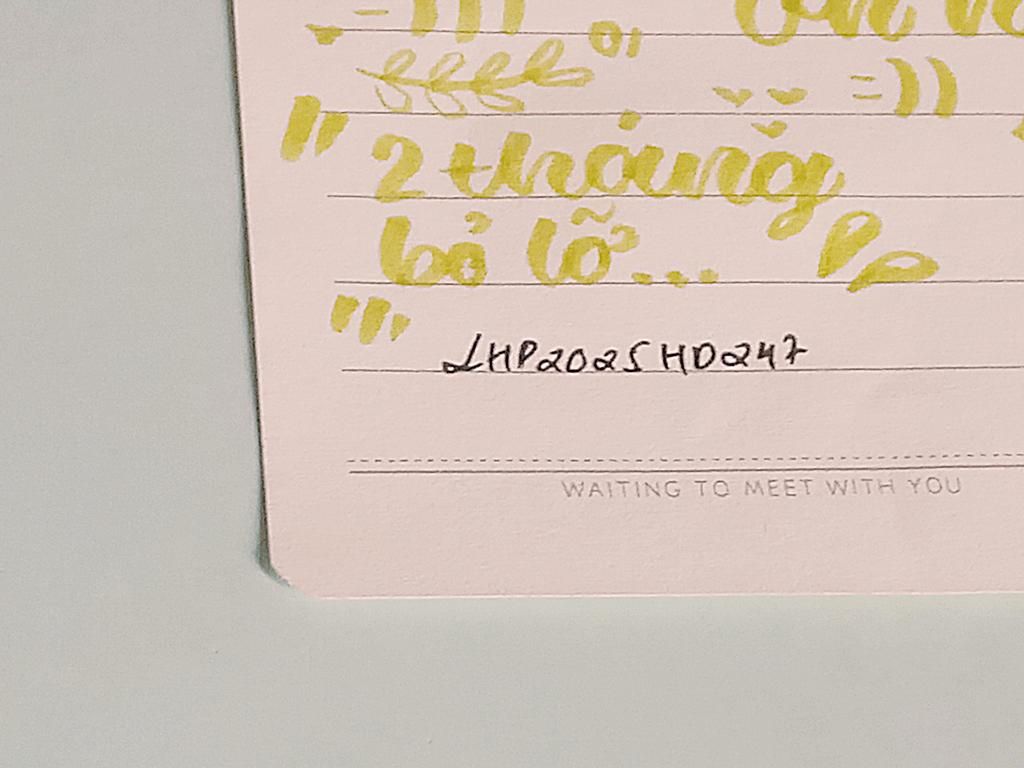 =)))
" 2 tháng =))
bỏ lỡ...
"
LHP2025HD247
WAITING TO MEET WITH YOU